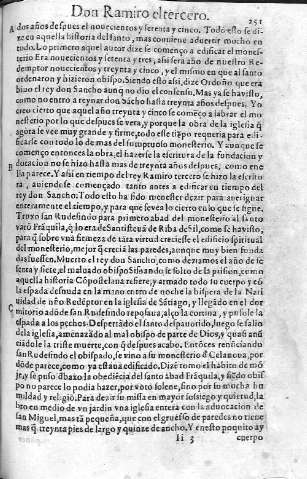 Don Ramiro el tercero.
251
A dos años despues el nouecientos y setenta y cinco. Todo esto se di-
ze en aquella historia del santo, mas conuiene aduertir mucho en
todo. Lo primero aquel autor dize se començo a edificar el mones-
terio Era nouecientos y setenta y tres, assi sera año de nuestro Re-
demptor nouecientos y treynta y cinco, y el mismo en que al santo
ordenaron y hizieron obispo. Siendo esto assi, dize Ordoño que era
biuo el rey don Sancho aunq no dio el consenso. Mas ya se ha visto,
como no entro a reynar don Sancho hasta treynta años despues. Yo
creo cierto que aquel año treynta y cinco se começo a labrar el mo-
nesterio por lo que despues se vera, y porque la obra de la iglesia q̃
agora se vee muy grande y firme, todo esse tiẽpo requeria para edi-
ficarse con todo lo de mas del sumptuoso monesterio. Y aunque se
començo entonces la obra, el hazerle la escritura de la fundacion y
B dotacion no se hizo hasta mas de treynta años despues, como en e
lla parece. Y assi en tiempo del rey Ramiro tercero se hizo la escritu
ra, auiendose començado tanto antes a edificar en tiempo del
rey don Sancho. Todo esto ha sido menester dezir para aueriguar
enteramente el tiempo, y para que se vea lo cierto en lo que se sigue.
Truxo san Rudesindo para primero abad del monesterio al santo
varõ Frãquila, q̃ lo era de Santisteuã de Riba de Sil, como se ha visto,
para q̃ sobre vna firmeza de tanta virtud creciesse el edificio spiritual
del monesterio, mejor q̃ crecia las paredes, aunque muy bien funda
das fuessen. Muerto el rey don Sancho, como deziamos el año de se
senta y siete, el maluado obispo Sisnando se solto de la prision, como
aquella historia Cõpostelana refiere, y armado todo su cuerpo y cõ
la espada desnuda en la mano entro de noche la bispera de la Nati
uidad de ñro Redẽptor en la iglesia de Sãtiago, y llegado en el dor
C mitorio adõde san Rudesindo reposaua, alço la cortina, y pusole la
espada a los pechos. Despertãdo el santo despauorido, luego se salio
de la iglesia, amenazãdo al mal obispo de parte de Dios, y aun anũ
ciãdole la triste muerte, con q̃ despues acabo. Entõces renunciando
san Rudesindo el obispado, se vino a su monesterio d̃ Celanoua, por
dõde parece, como ya estaua edificado. Dizẽ tomo el habito de mõ
je, y se puso d̃baxo la obediẽcia del santo abad Frãquila, y siẽdo obis
po no parece lo podia hazer, por voto solene, sino por su mucha hu
mildad y religiõ. Para dezir su missa en mayor sossiego y quietud, la
bro en medio de vn jardin vna iglesia entera con la aduocacion de
san Miguel, mas tã pequeña, que con el gruesso de paredes no tiene
mas q̃ treynta pies de largo y quinze de ancho. Y en esto poquito ay
Ii 3
cuerpo